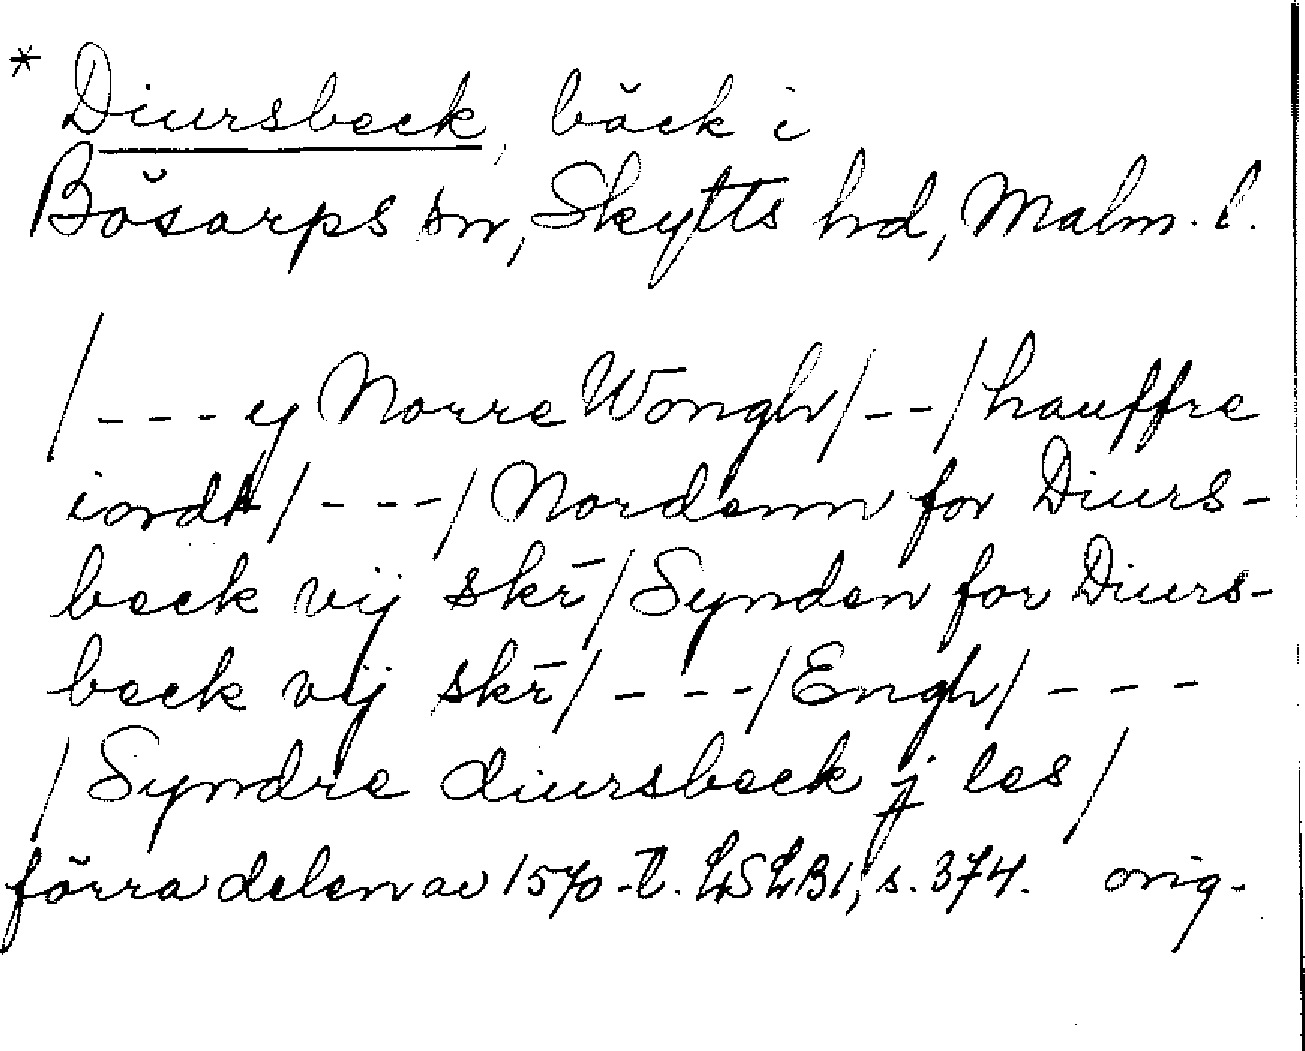 * Diursbeck, bäck i
Bösarps sn, Skytts hd, Malm. l.
/---y Norre Wongh/--/hauffre
iordh/---/Nordenn for Diurs-
beck vij skr̄/Synden for Diurs-
beck vij skr̄/---/Engh/---
/Syndre diursbeck j les/
förra delen av 1570-t. LSLB1, s. 374. orig.